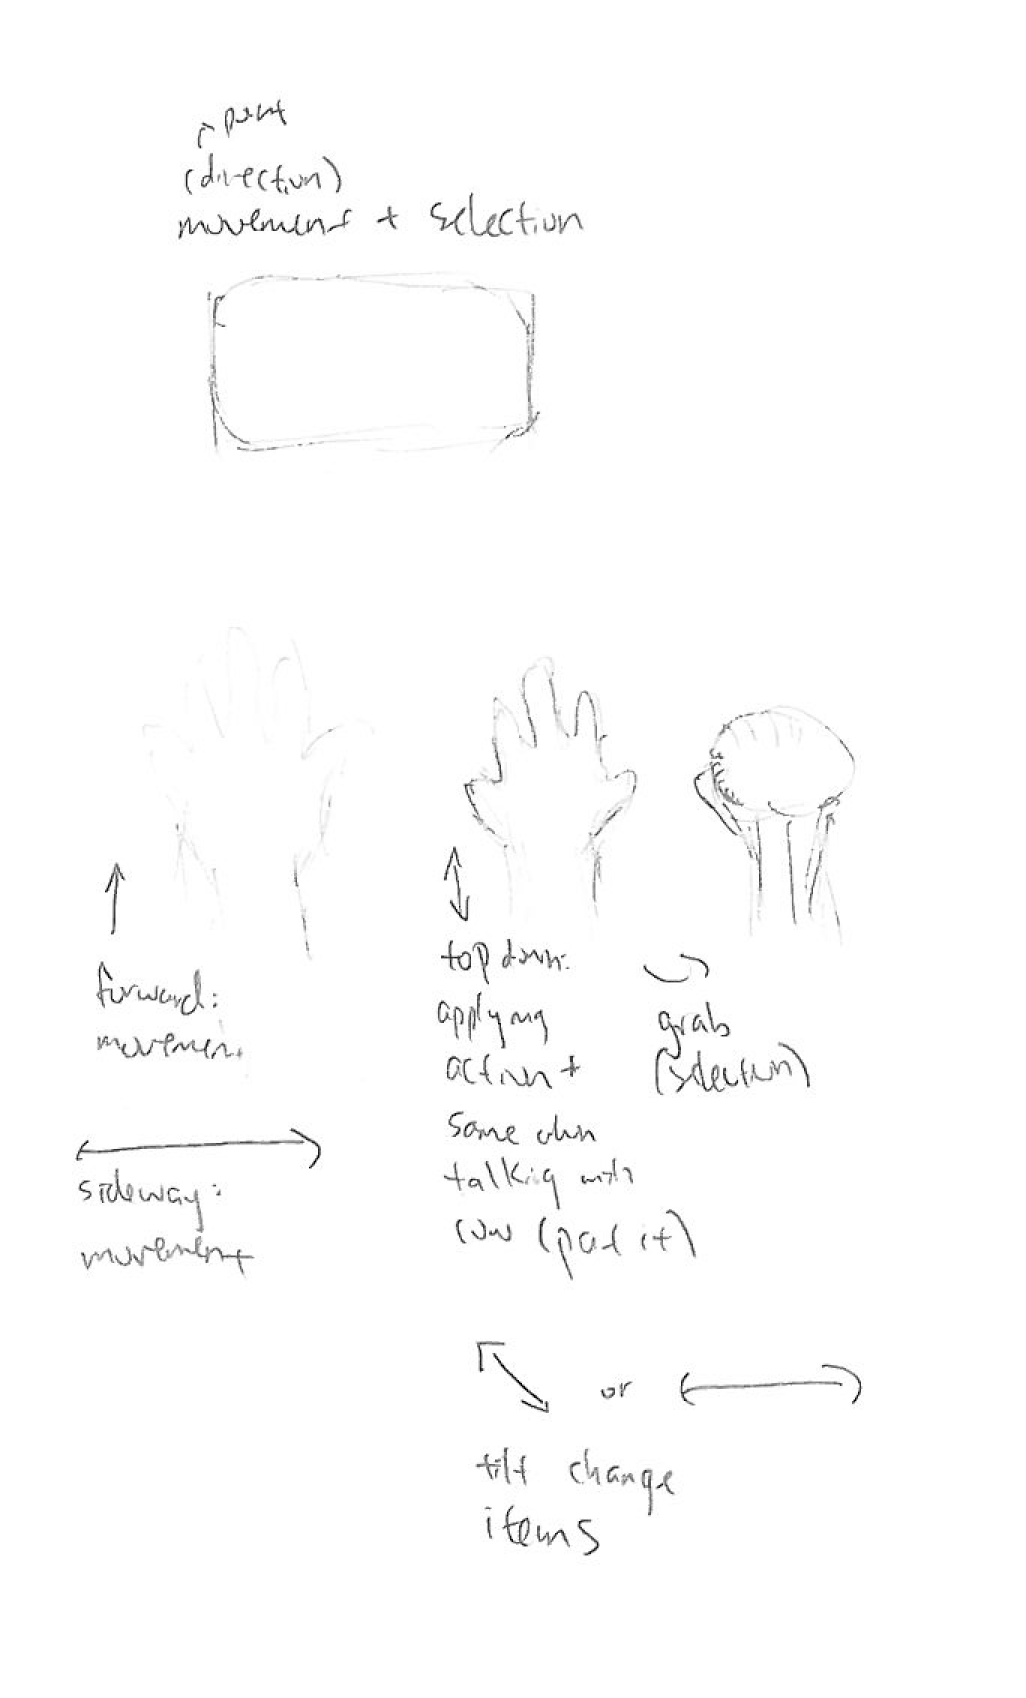 point
(direction)
movement + selection
forward:
movement
sideway:
movement
top down:
applying
action +
same when
talking with
cow (pat it)
grab
(selection)
or
tilt change
items